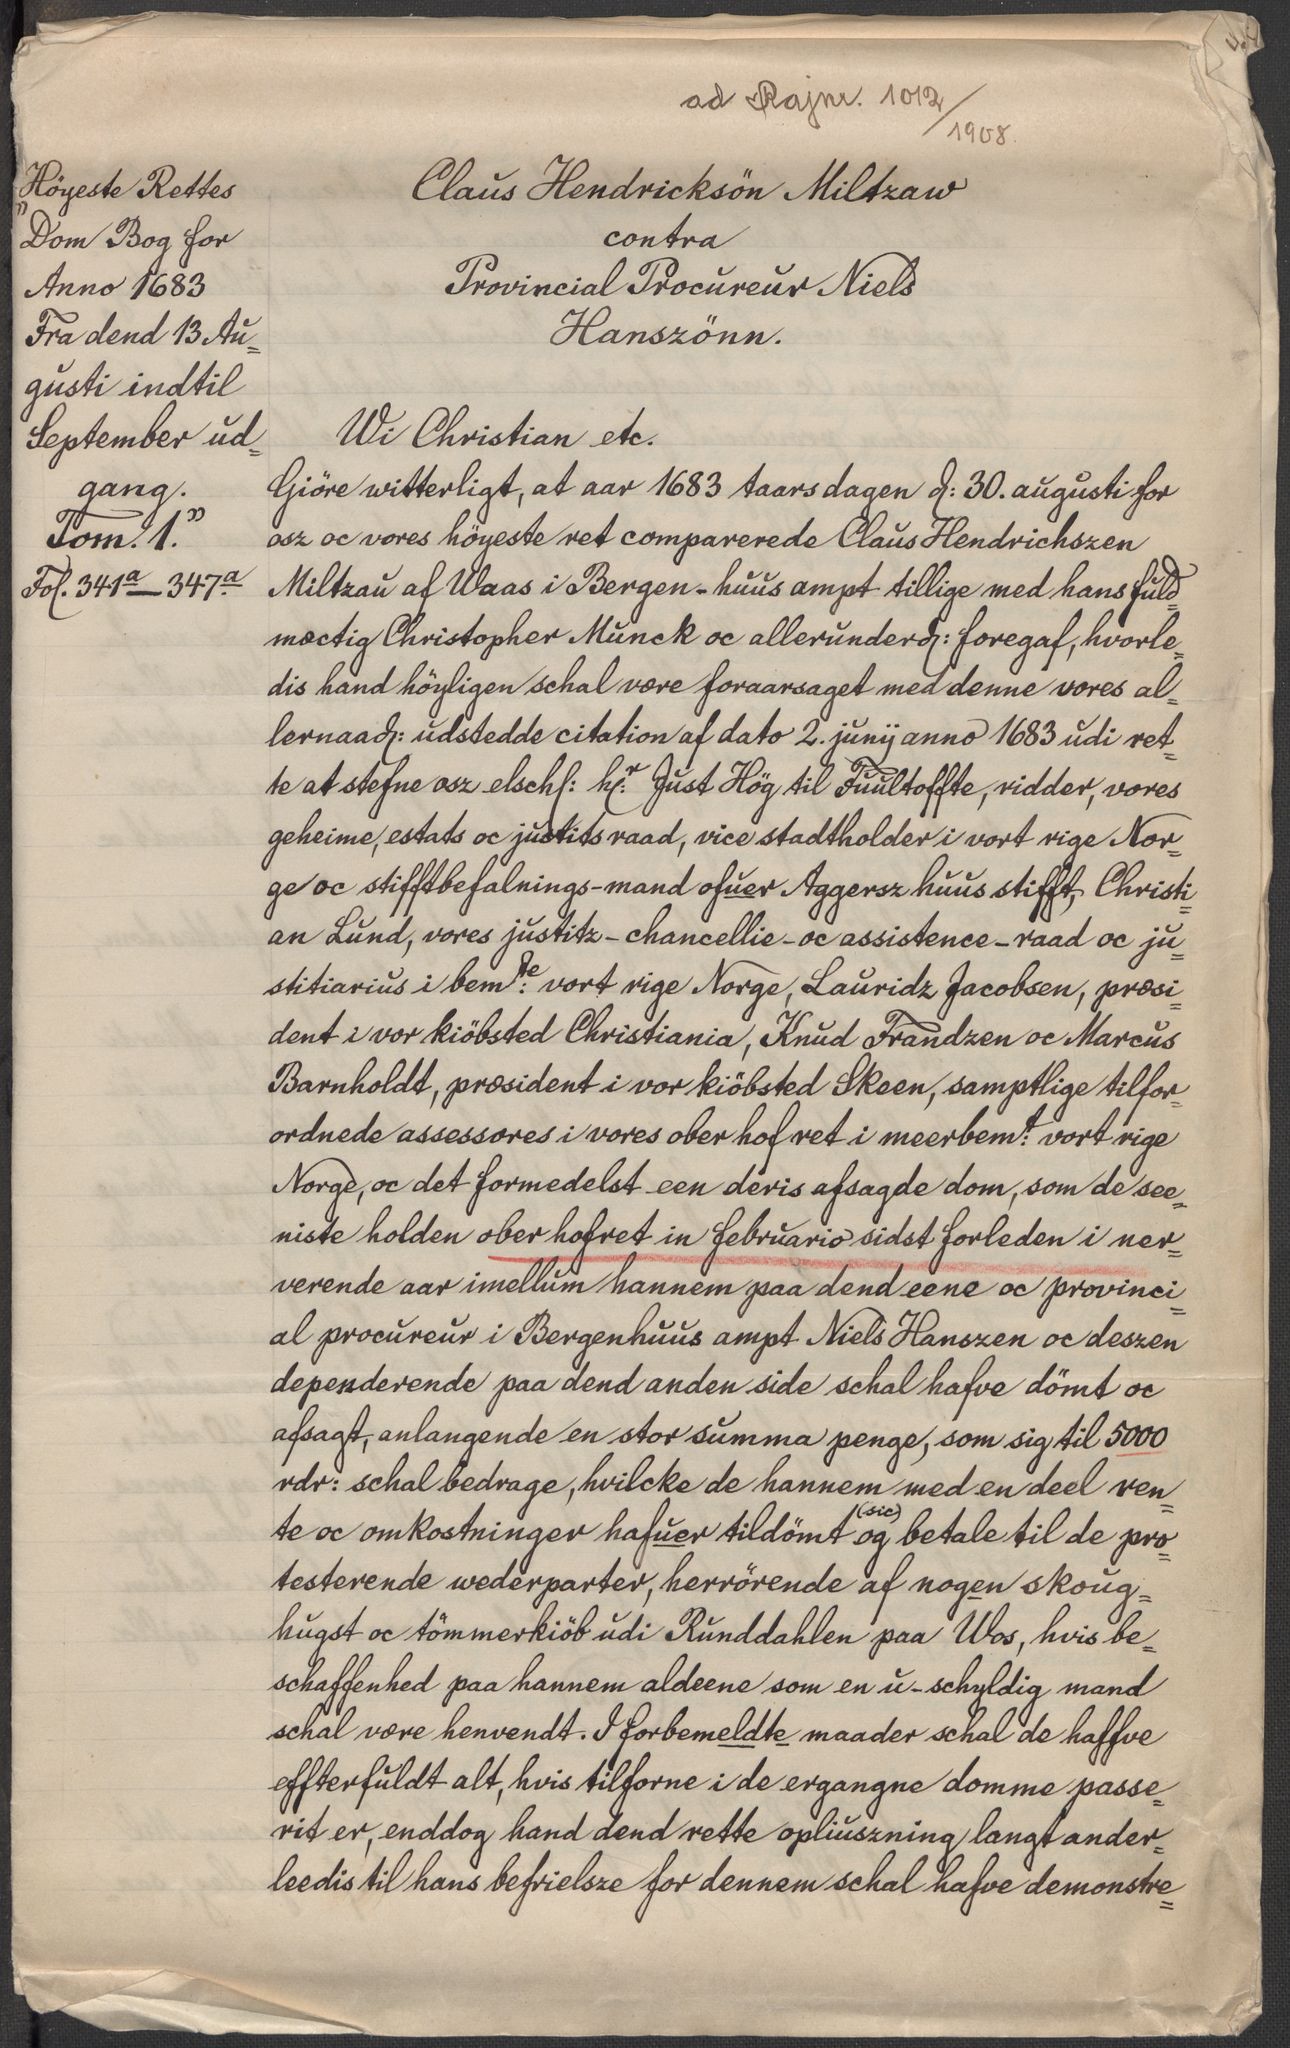 ad Rajnr. 1012/1908.
Höyeste Rettes
"Dom Bog for
Anno 1683
Fra dend 13 Au=
gusti indtil
September ud=
gang.
Tom. 1."
Fol. 341a — 347a.
Claus Hendricksön Miltzaw
contra
Provincial Procureur Niels
Hanszönn.
Wi Christian etc.
Giöre witterligt, at aar 1683 taarsdagen d: 30. augusti for
osz oc vores höyeste ret comparerede Claus Hendrichszen
Miltzau af Waas i Bergen-huus ampt tillige med hans fuld
mæctig Christopher Munck oc allerunderd: foregaf, hvorle=
dis hand höyligen schal være foraarsaget med denne vores al=
lernaad: udstedde citation af dato 2. junij anno 1683 udi ret=
te at stefne osz elschl: hr. Just Hög til Fuultoffte, ridder, vores
geheime, estats oc justits raad, vice stadtholder i vort rige Nor=
ge oc stifftbefalnings-mand ofuer Aggersz huus stifft, Christi=
an Lund, vores justitz-chancellie-oc assistence-raad oc ju=
stitiarius i bemte: vort rige Norge, Lauridz Jacobsen, præsi=
dent i vor kiöbsted Christiania, Knud Frandzen oc Marcus
Barnholdt, præsident i vor kiöbsted Skeen, samptlige tilfor=
ordnede assessores i vores ober hof ret i meerbemt: vort rige
Norge, oc det formedelst een deris afsagde dom, som de see=
niste holden ober hofret in februario sidst forleden i ner=
verende aar imellum hannem paa dend eene oc provinci=
al procureur i Bergenhuus ampt Niels Hanszen oc deszen
dependerende paa dend anden side schal hafve dömt oc
afsagt, anlangende en stor summa penge, som sig til 5000
rdr: schal bedrage, hvilcke de hannem med en deel ren=
te oc omkostninger hafuer tildömt og (sic) betale til de pro=
testerende wederparter, herrörende af nogen skoug=
hugst oc tömmerkiöb udi Runddahlen paa Wos, hvis be=
schaffenhed paa hannem aldeene som en u-schyldig mand
schal være henvendt. I forbemeldte maader schal de haffve
effterfuldt alt, hvis tilforne i de ergangne domme passe=
rit er, enddog hand dend rette opliuszning langt ander=
leedis til hans befrielsze for dennem schal hafve demonstre=